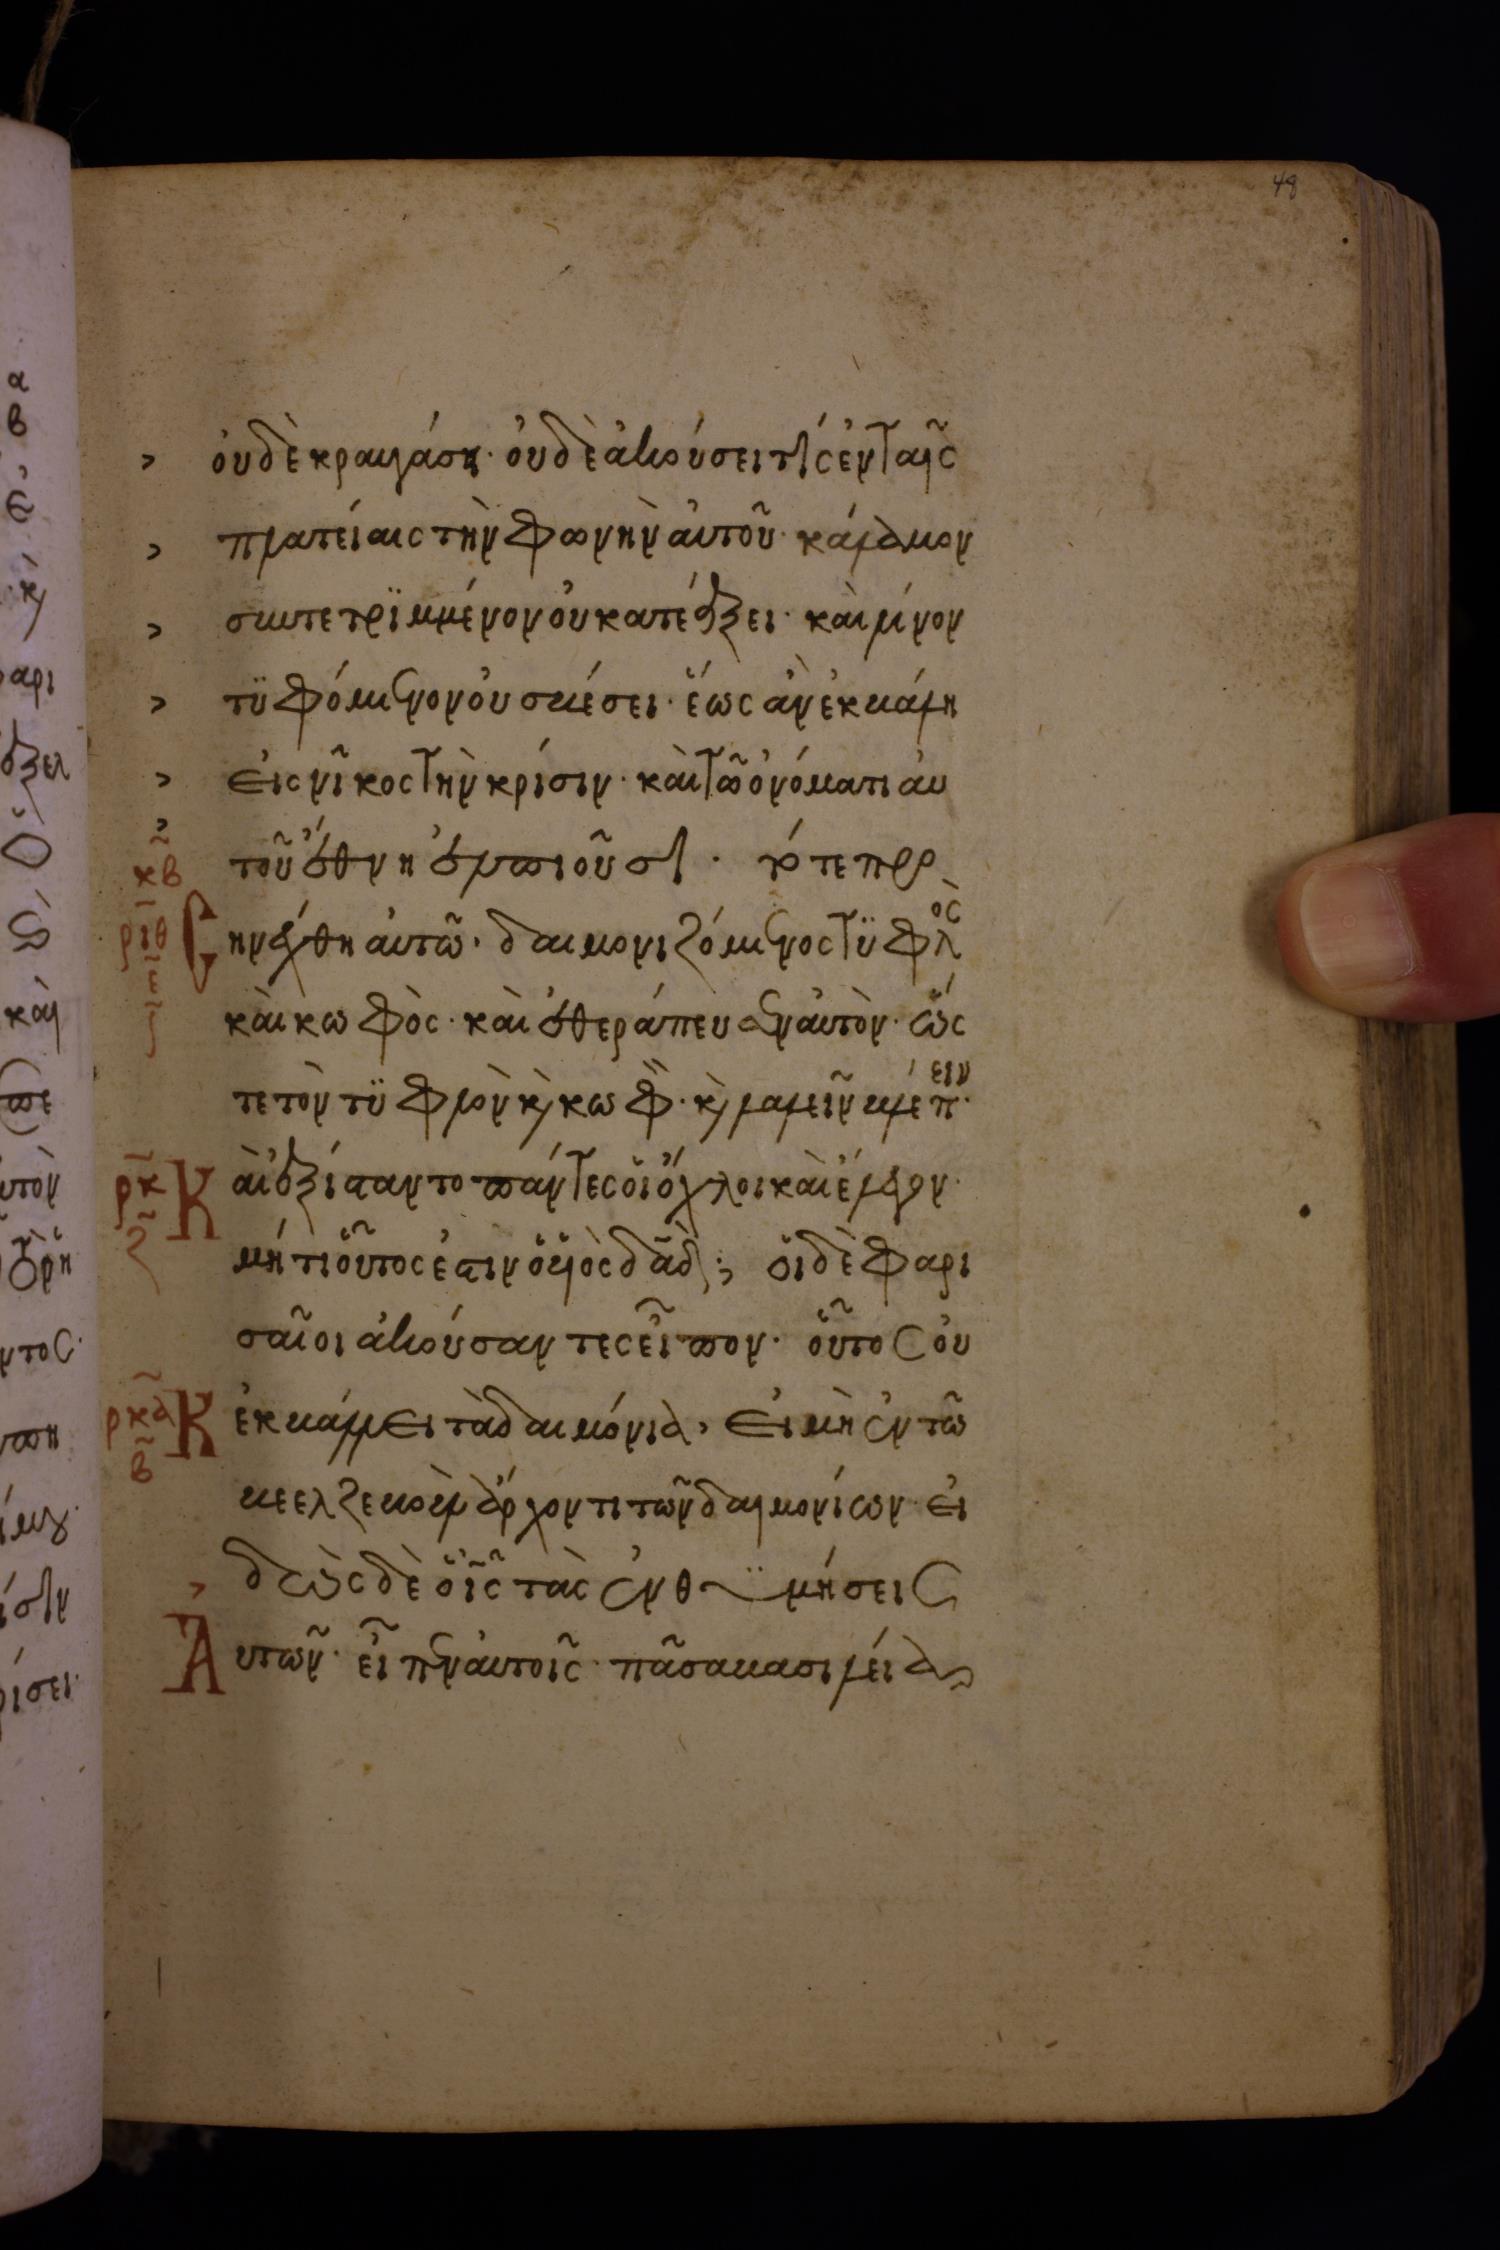 48
οὐδὲ κραυγάση· οὐδὲ ἀκούσει τὶς ἐν ταῖς
πλατείαις τὴν φωνὴν ἀυτοῦ· κάλαμον
συντετρϊμμένον οὐ κατεάξει· καὶ λίνον
τϋφόμενον οὐ σβέσει· ἕως ἂν ἐκβάλη
εἰς νῖκος τὴν κρίσιν· καὶ τῶ ὀνόματι ἀυ
κβ τοῦ ἔθνη ἐλπιοῦσι· τότε προ
ριθ ε σηνέχθη αὐτῶ, δαιμονιζόμενος τϋφλὸς
καὶ κωφὸς· καὶ ἐθεράπευσεν αὐτὸν· ὥς
τε τὸν τϋφλὸν κ κωφ· κ λαλεῖν κ βλέπειν·
ρκ ζ Καὶ ἐξίσταντο πάντες ὁι ὄχλοι καὶ ἔλεγον·
μήτι οὗτος ἐστιν ὁ υἱὸς δαδ; ὁι δὲ φαρι
σαῖοι ἀκούσαντες εἶπον· οὗτος οὐ
ρκα β ἐκβάλλει τὰ δαιμόνια, εἰ μὴ ἐν τῶ
βεελζεβοὺλ ἄρχοντι τῶν δαιμονίων· εἰ
δὼς δὲ ὁ ις τὰς ἐνθϋμήσεις
Αυτῶν· εἶπεν ἀυτοῖς· πᾶσα βασιλεία